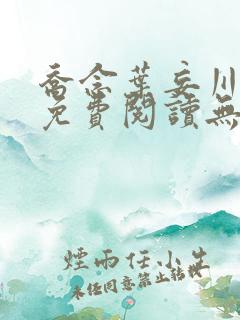 喬念葉妄川
免費閱讀無
煙雨任小生
未任同意禁止轉載